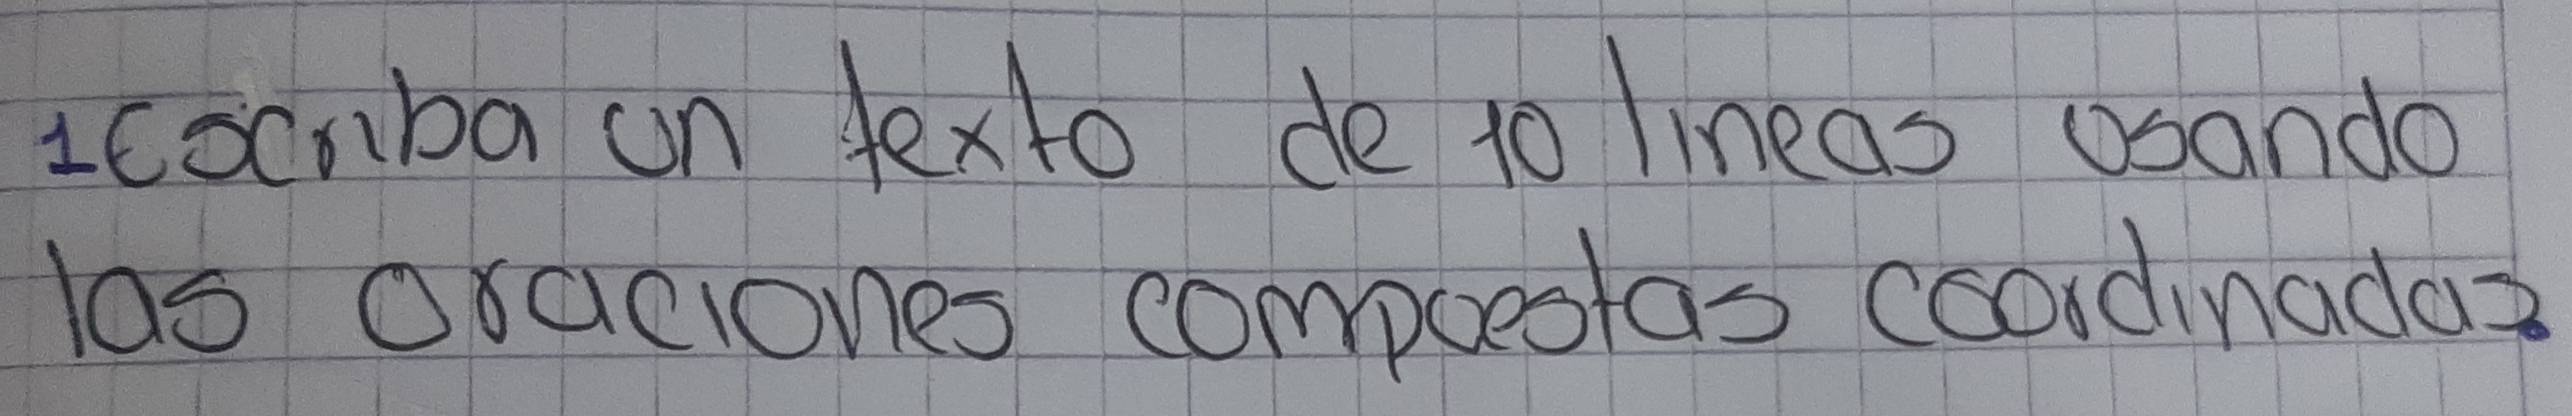 1 Escriba un texto de 10 lineas usando
las oraciones compuestas coordinadas.